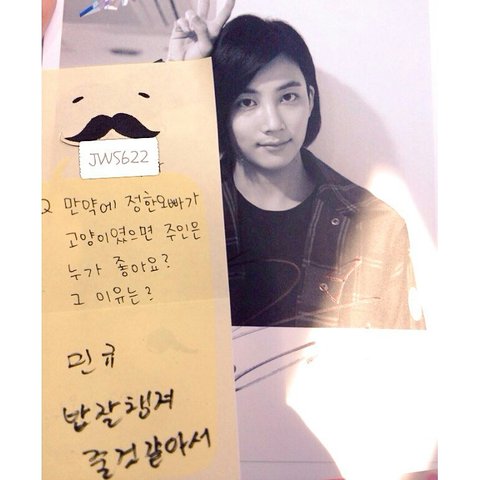 JWS622
Q 만약에 정한오빠가
고양이였으면 주인은
누가 좋아요?
그 이유는?
민규
밥잘챙겨
줄것같아서